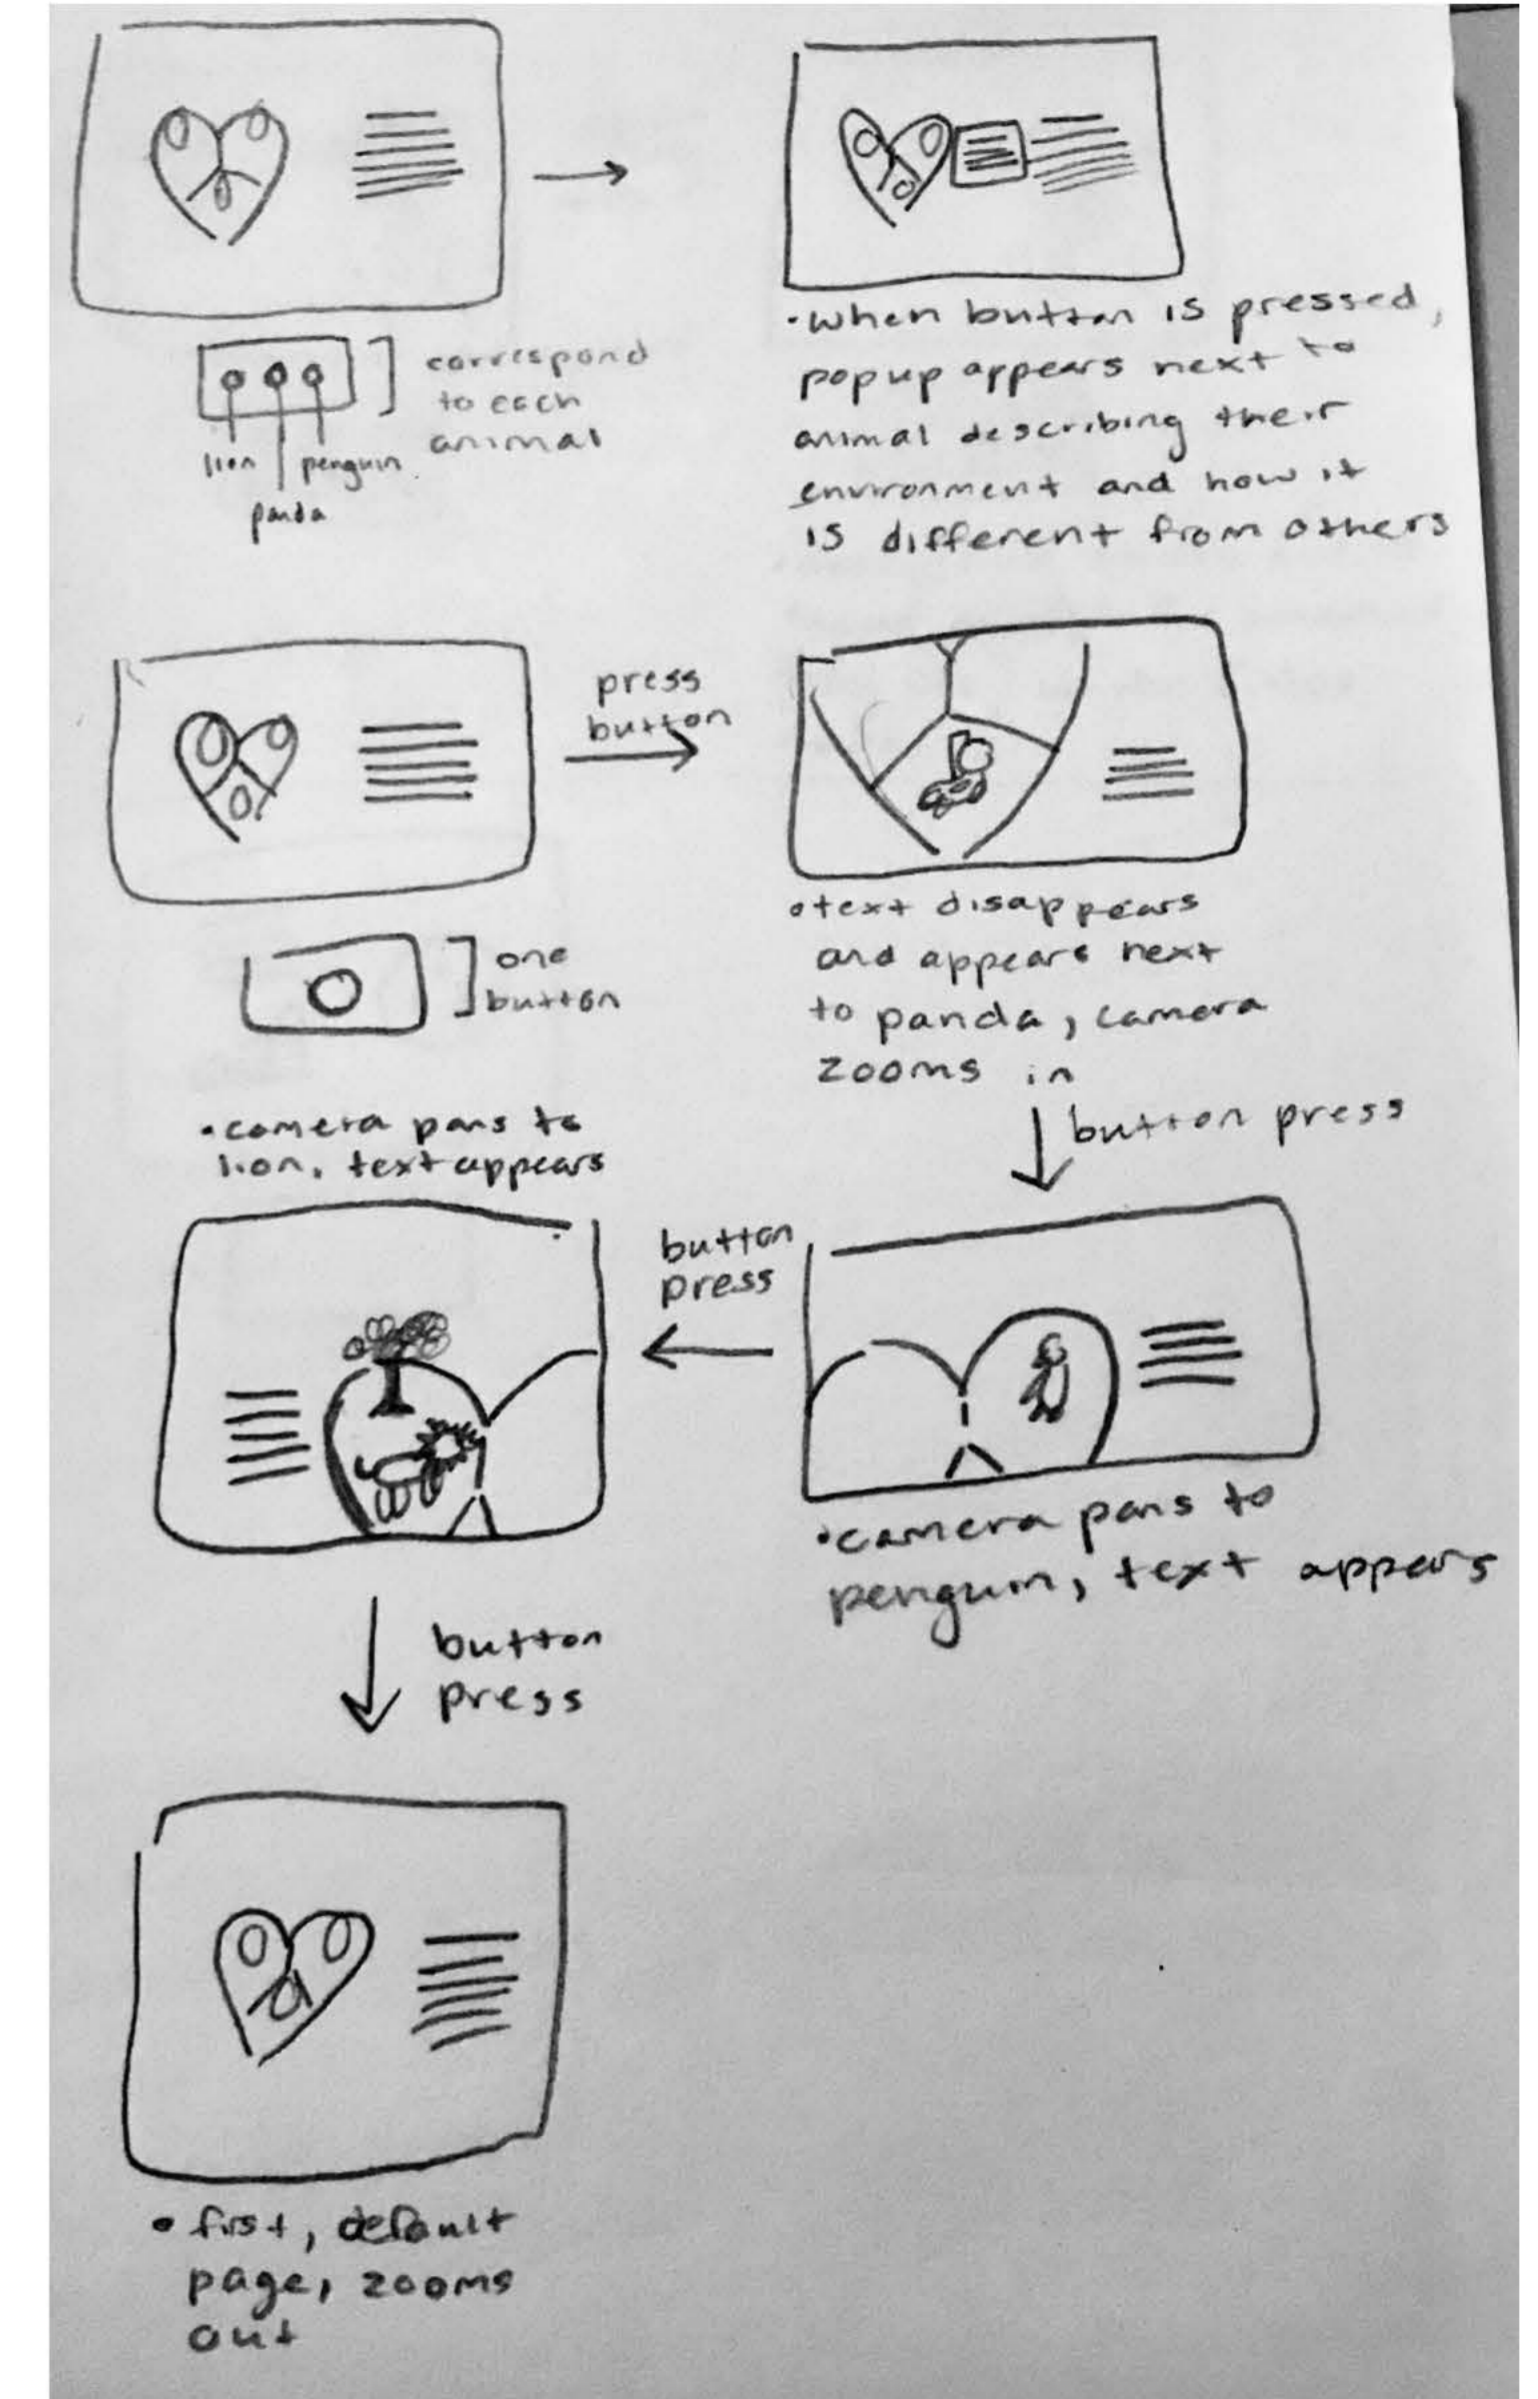 correspond
to each
animal
lion
penguin
panda
•when button is pressed,
popup appears next to
animal describing their
environment and how it
is different from others
press
button
one
button
•text disappears
and appears next
to panda, camera
zooms in
button press
•camera pans to
lion, text appears
button
press
•camera pans to
penguin, text appears
button
press
•first, default
page, zooms
out